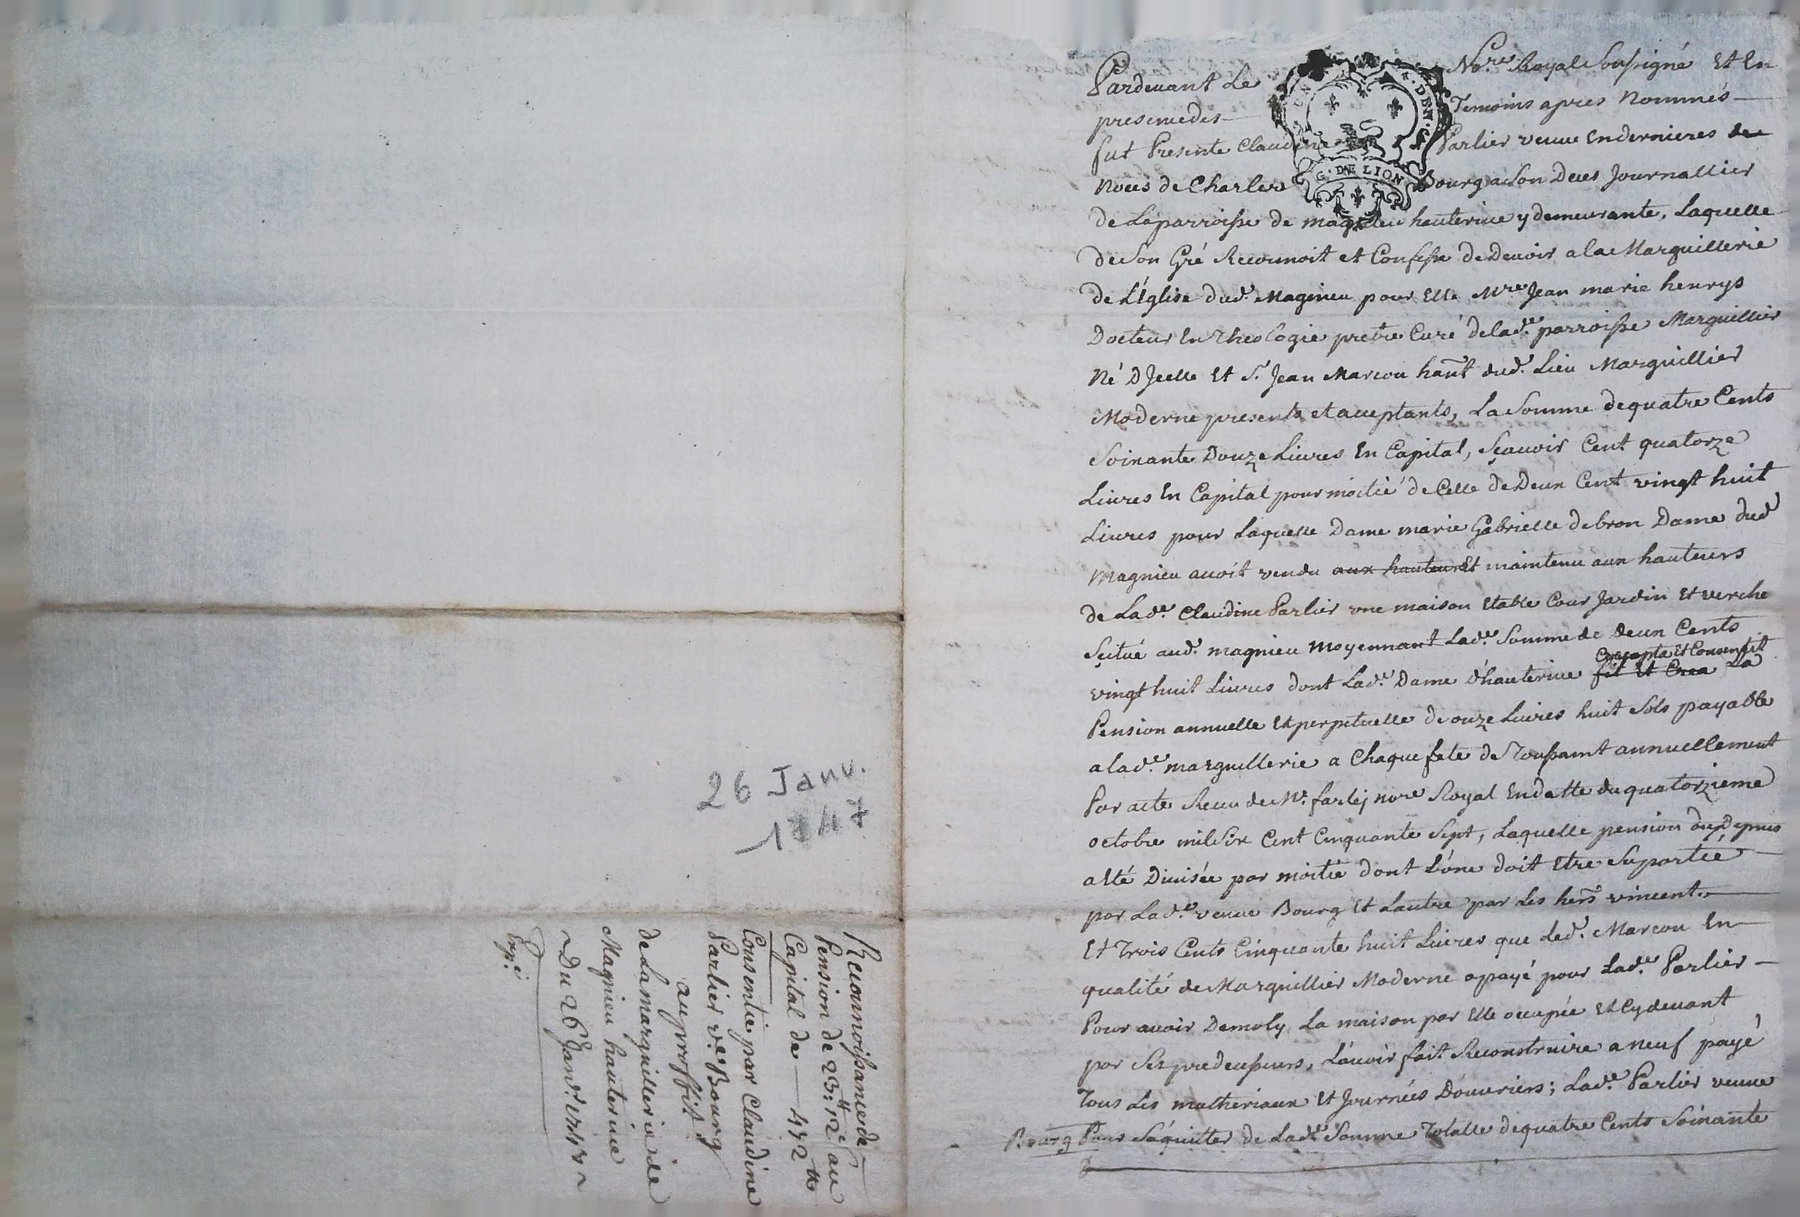 26 Janv.
1747
Reconnoissance de
Pension de 23 12 au
Capital de — 472
Consentie par Claudine
Parlier ve Bourg
au proffit
de La marguillerie de
Magnieu hauterive
Du 26 Janr. 1747
Exp.
Pardevant Le Nore. Royal Soussigné Et En
presence des Temoins apres Nommés
fut Presente Claudine Parlier veuve En dernieres de
Noces de Charles Bourg a Son Deces Journallier
de La parroisse de magnieu hauterive y demeurante, Laquelle
de Son Gré Reconnoit et Confesse de Devoir a la Marguillerie
de L'Eglise dud. Magnieu pour Elle Mre Jean marie henrys
Docteur En Theologie pretre Curé de lade. parroisse Marguillier
Né D'Jcelle Et Sr. Jean Marcou hant dud. Lieu Marguillier
Moderne presents et acceptants, La Somme de quatre Cents
Soixante Douze Livres En Capital, Sçavoir Cent quatorze
Livres En Capital pour moitié de Celle de Deux Cent vingt huit
Livres pour Laquelle Dame marie Gabrielle debron Dame dud
Magnieu avoit vendu aux hauteurs Et maintenu aux hauteurs
de Lade. Claudine Parlier une maison Etable Cour Jardin Et verche
Scitué aud. magnieu moyennant Lade. Somme de deux Cents
vingt huit Livres dont Lade. Dame d'hauterive fit Et Crea accepta Et Consentit La
Pension annuelle Et perpetuelle de onze Livres huit Sols payable
a lade. marguillerie a Chaque fete de Toussaint annuellement
Par acte Receu de Me. farlej nore Royal En datte du quatorzieme
octobre mil Six Cent Cinquante Sept, Laquelle pension du depuis
a Eté Divisée par moitié dont L'une doit Etre Suportée
par Lade. veuve Bourg Et Lautre par Les hers vincent.
Et Trois Cents Cinquante huit Livres que Led. Marcou En
qualité de Marguillier Moderne a payé pour Lade. Parlier
Pour avoir Demoly La maison par Elle occupée Et Cydevant
par Ses predecesseurs, L'avoir fait Reconstruire a neuf payé
Tous Les matheriaux Et Journées D'ouvriers; Lade. Parlier veuve
Bourg Pour S'aquitter de Lade. Somme Totalle de quatre Cents Soixante
G. DE LION